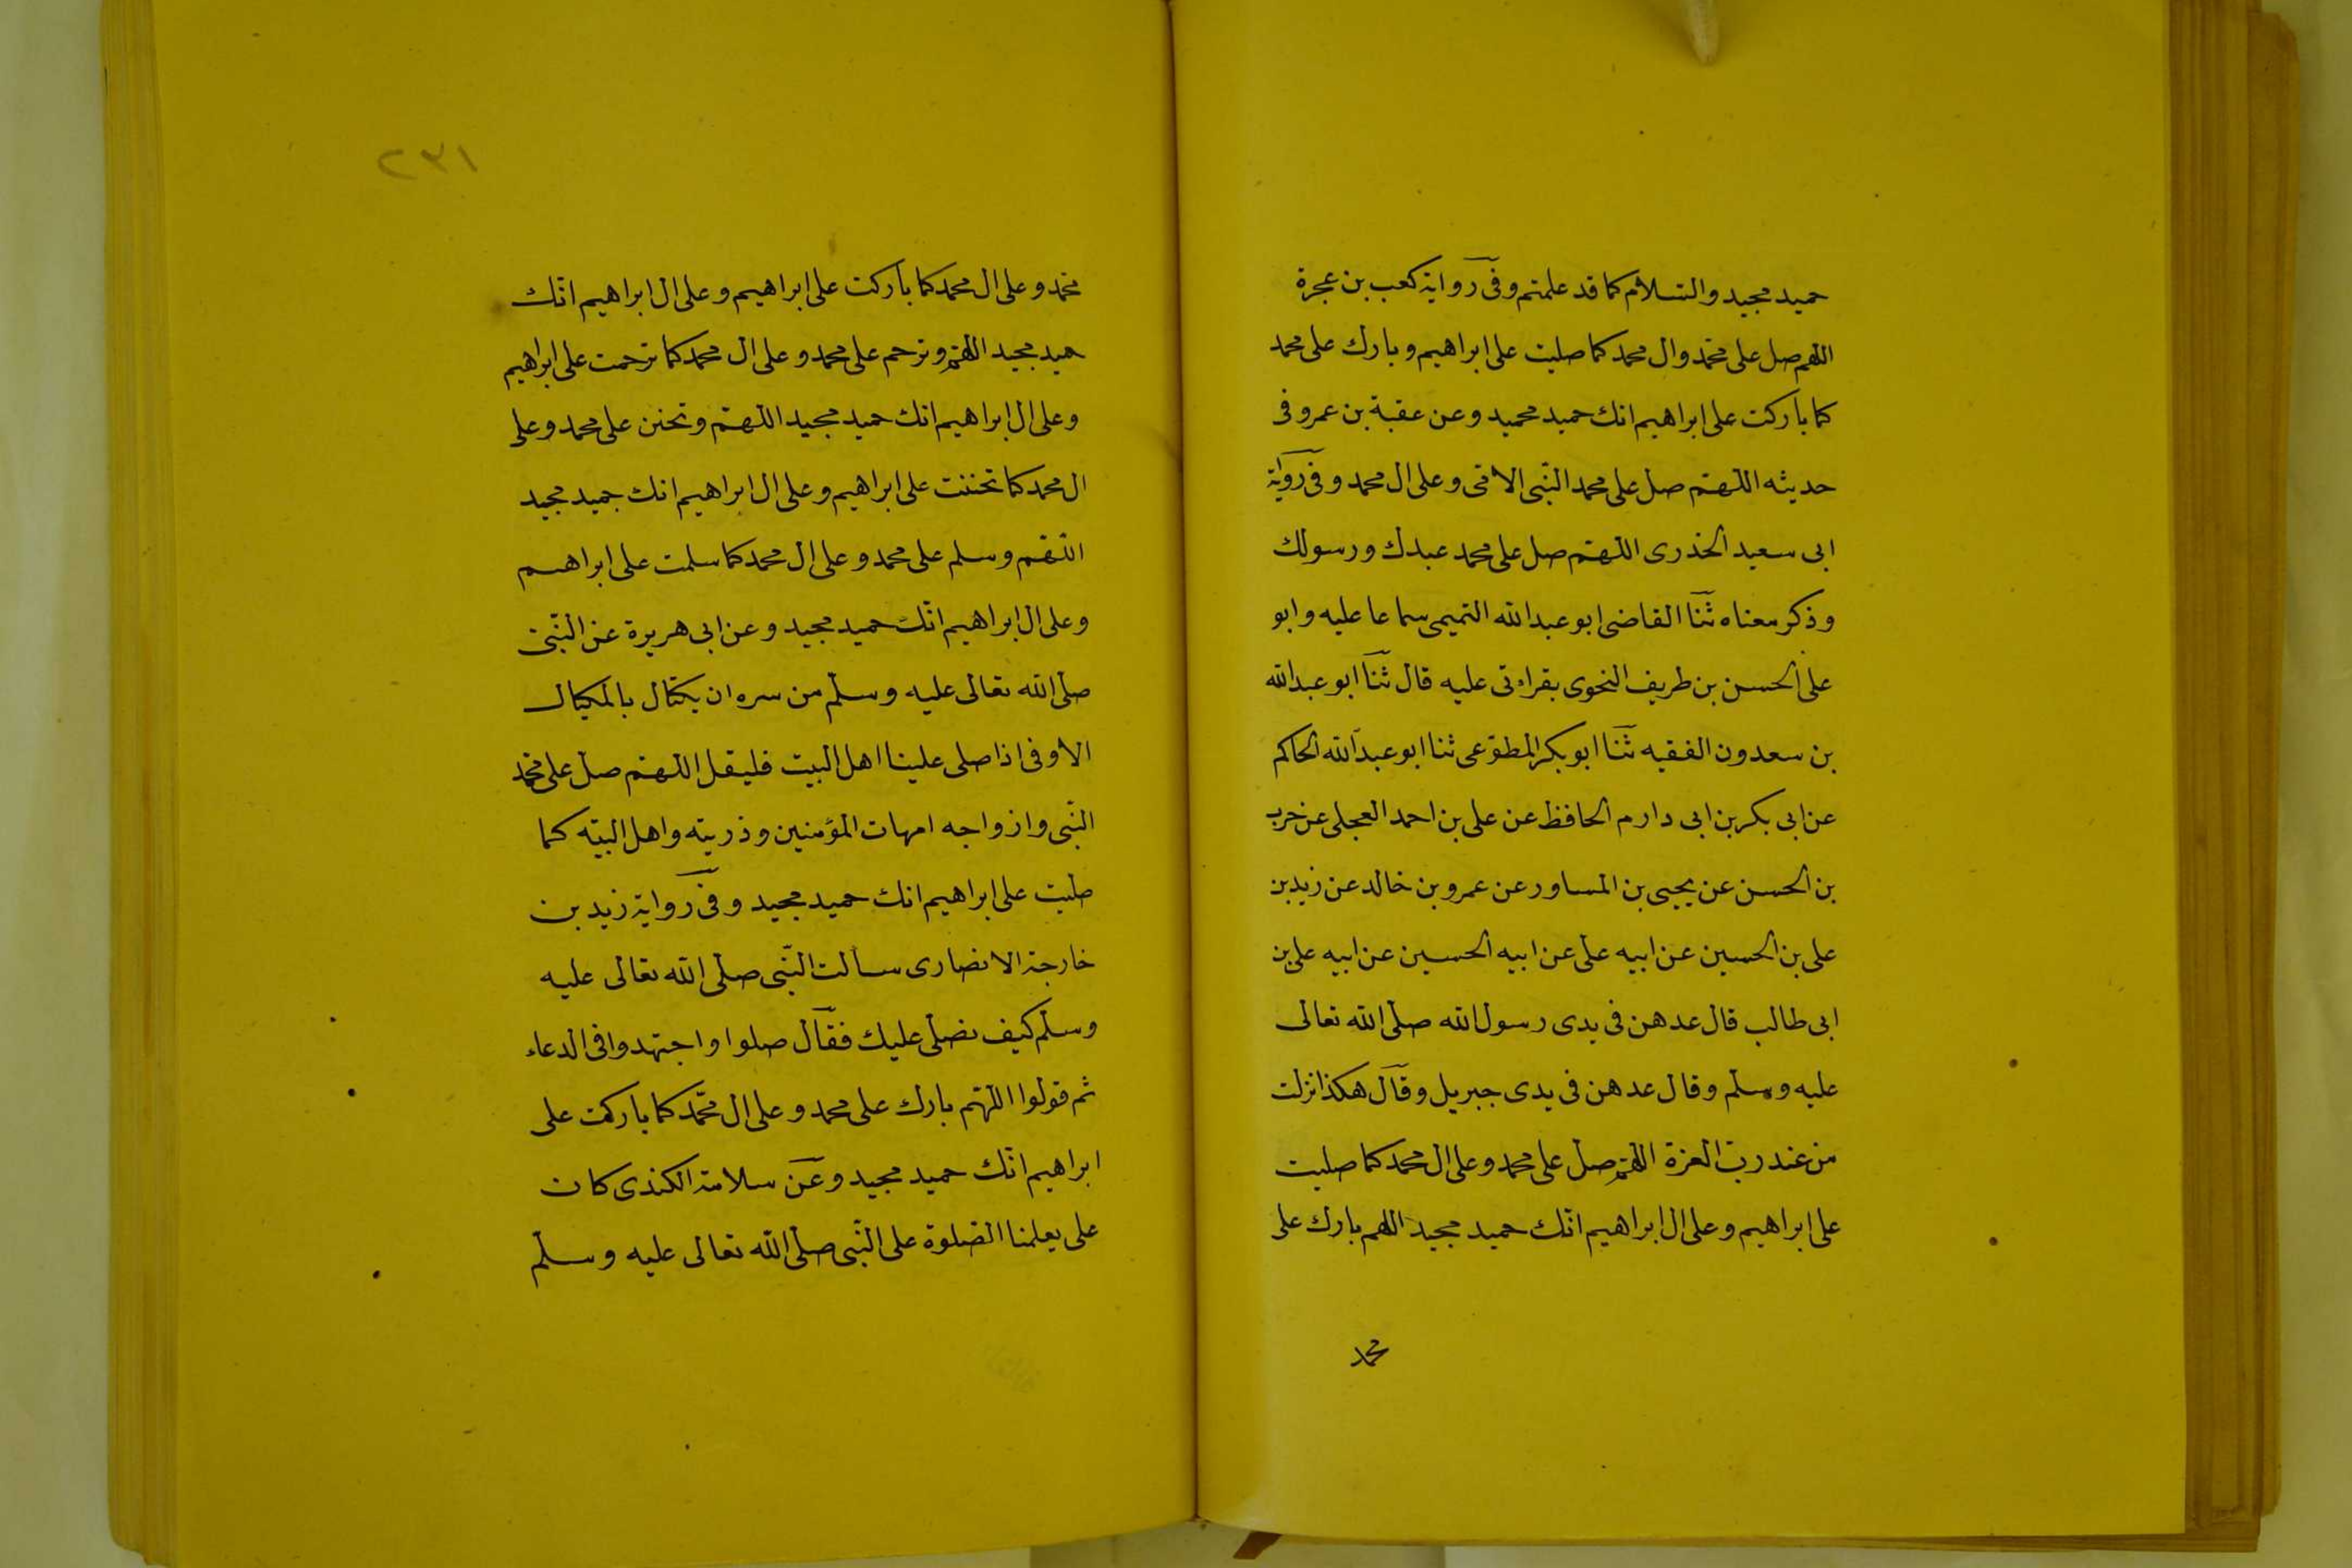 حميد مجيد والسلام كما قد علمتم وفى رواية كعب بن عجرة
اللهم صل على محمد وال محمد كما صليت على ابراهيم وبارك على محمد
كما باركت على ابراهيم انك حميد مجيد وعن عقبة بن عمرو فى
حديثه اللهم صل على محمد النبى الامى وعلى ال محمد وفى رواية
ابى سعيد الخذرى اللهم صل على محمد عبدك ورسولك
وذكر معناه ثنا القاضى ابو عبد الله التميمى سماعا عليه وابو
على الحسن بن طريف النحوى بقراءتى عليه قال ثنا ابو عبد الله
بن سعدون الفقيه ثنا ابو بكر المطوعى ثنا ابو عبد الله الحاكم
عن ابى بكر بن ابى دارم الحافظ عن على بن احمد العجلى عن حرب
بن الحسن عن يحيى بن المساور عن عمرو بن خالد عن زيد بن
على بن الحسين عن ابيه على عن ابيه الحسين عن ابيه على بن
ابى طالب قال عدهن فى يدى رسول الله صلى الله تعالى
عليه وسلم وقال عدهن فى يدى جبريل وقال هكذا نزلت
من عند رب العزة اللهم صل على محمد وعلى ال محمد كما صليت
على ابراهيم وعلى ال ابراهيم انك حميد مجيد اللهم بارك على
محمد
٢٣١
محمد وعلى ال محمد كما باركت على ابراهيم وعلى ال ابراهيم انك
حميد مجيد اللهم وترحم على محمد وعلى ال محمد كما ترحمت على ابراهيم
وعلى ال ابراهيم انك حميد مجيد اللهم وتحنن على محمد وعلى
ال محمد كما تحننت على ابراهيم وعلى ال ابراهيم انك حميد مجيد
اللهم وسلم على محمد وعلى ال محمد كما سلمت على ابراهيم
وعلى ال ابراهيم انك حميد مجيد وعن ابى هريرة عن النبى
صلى الله تعالى عليه وسلم من سره ان يكتال بالمكيال
الاوفى اذا صلى علينا اهل البيت فليقل اللهم صل على محمد
النبى وازواجه امهات المؤمنين وذريته واهل البيته كما
صليت على ابراهيم انك حميد مجيد وفى رواية زيد بن
خارجة الانصارى سالت النبى صلى الله تعالى عليه
وسلم كيف نصلى عليك فقال صلوا واجتهدوا فى الدعاء
ثم قولوا اللهم بارك على محمد وعلى ال محمد كما باركت على
ابراهيم انك حميد مجيد وعن سلامة الكندى كان
على يعلمنا الصلوة على النبى صلى الله تعالى عليه وسلم